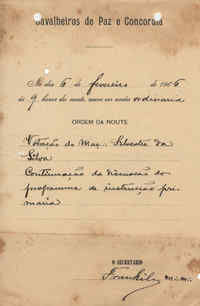 Cavalheiros de Paz e Concordia
No dia 6 de fevereiro de 1906
ás 9 horas da noute, haverá sessão ordinaria
ORDEM DA NOUTE
Votação do Maç∴ Silvestre da
Silva
Continuação da discussão do
programma de instrucção pri-
maria
O SECRETARIO
Franklin